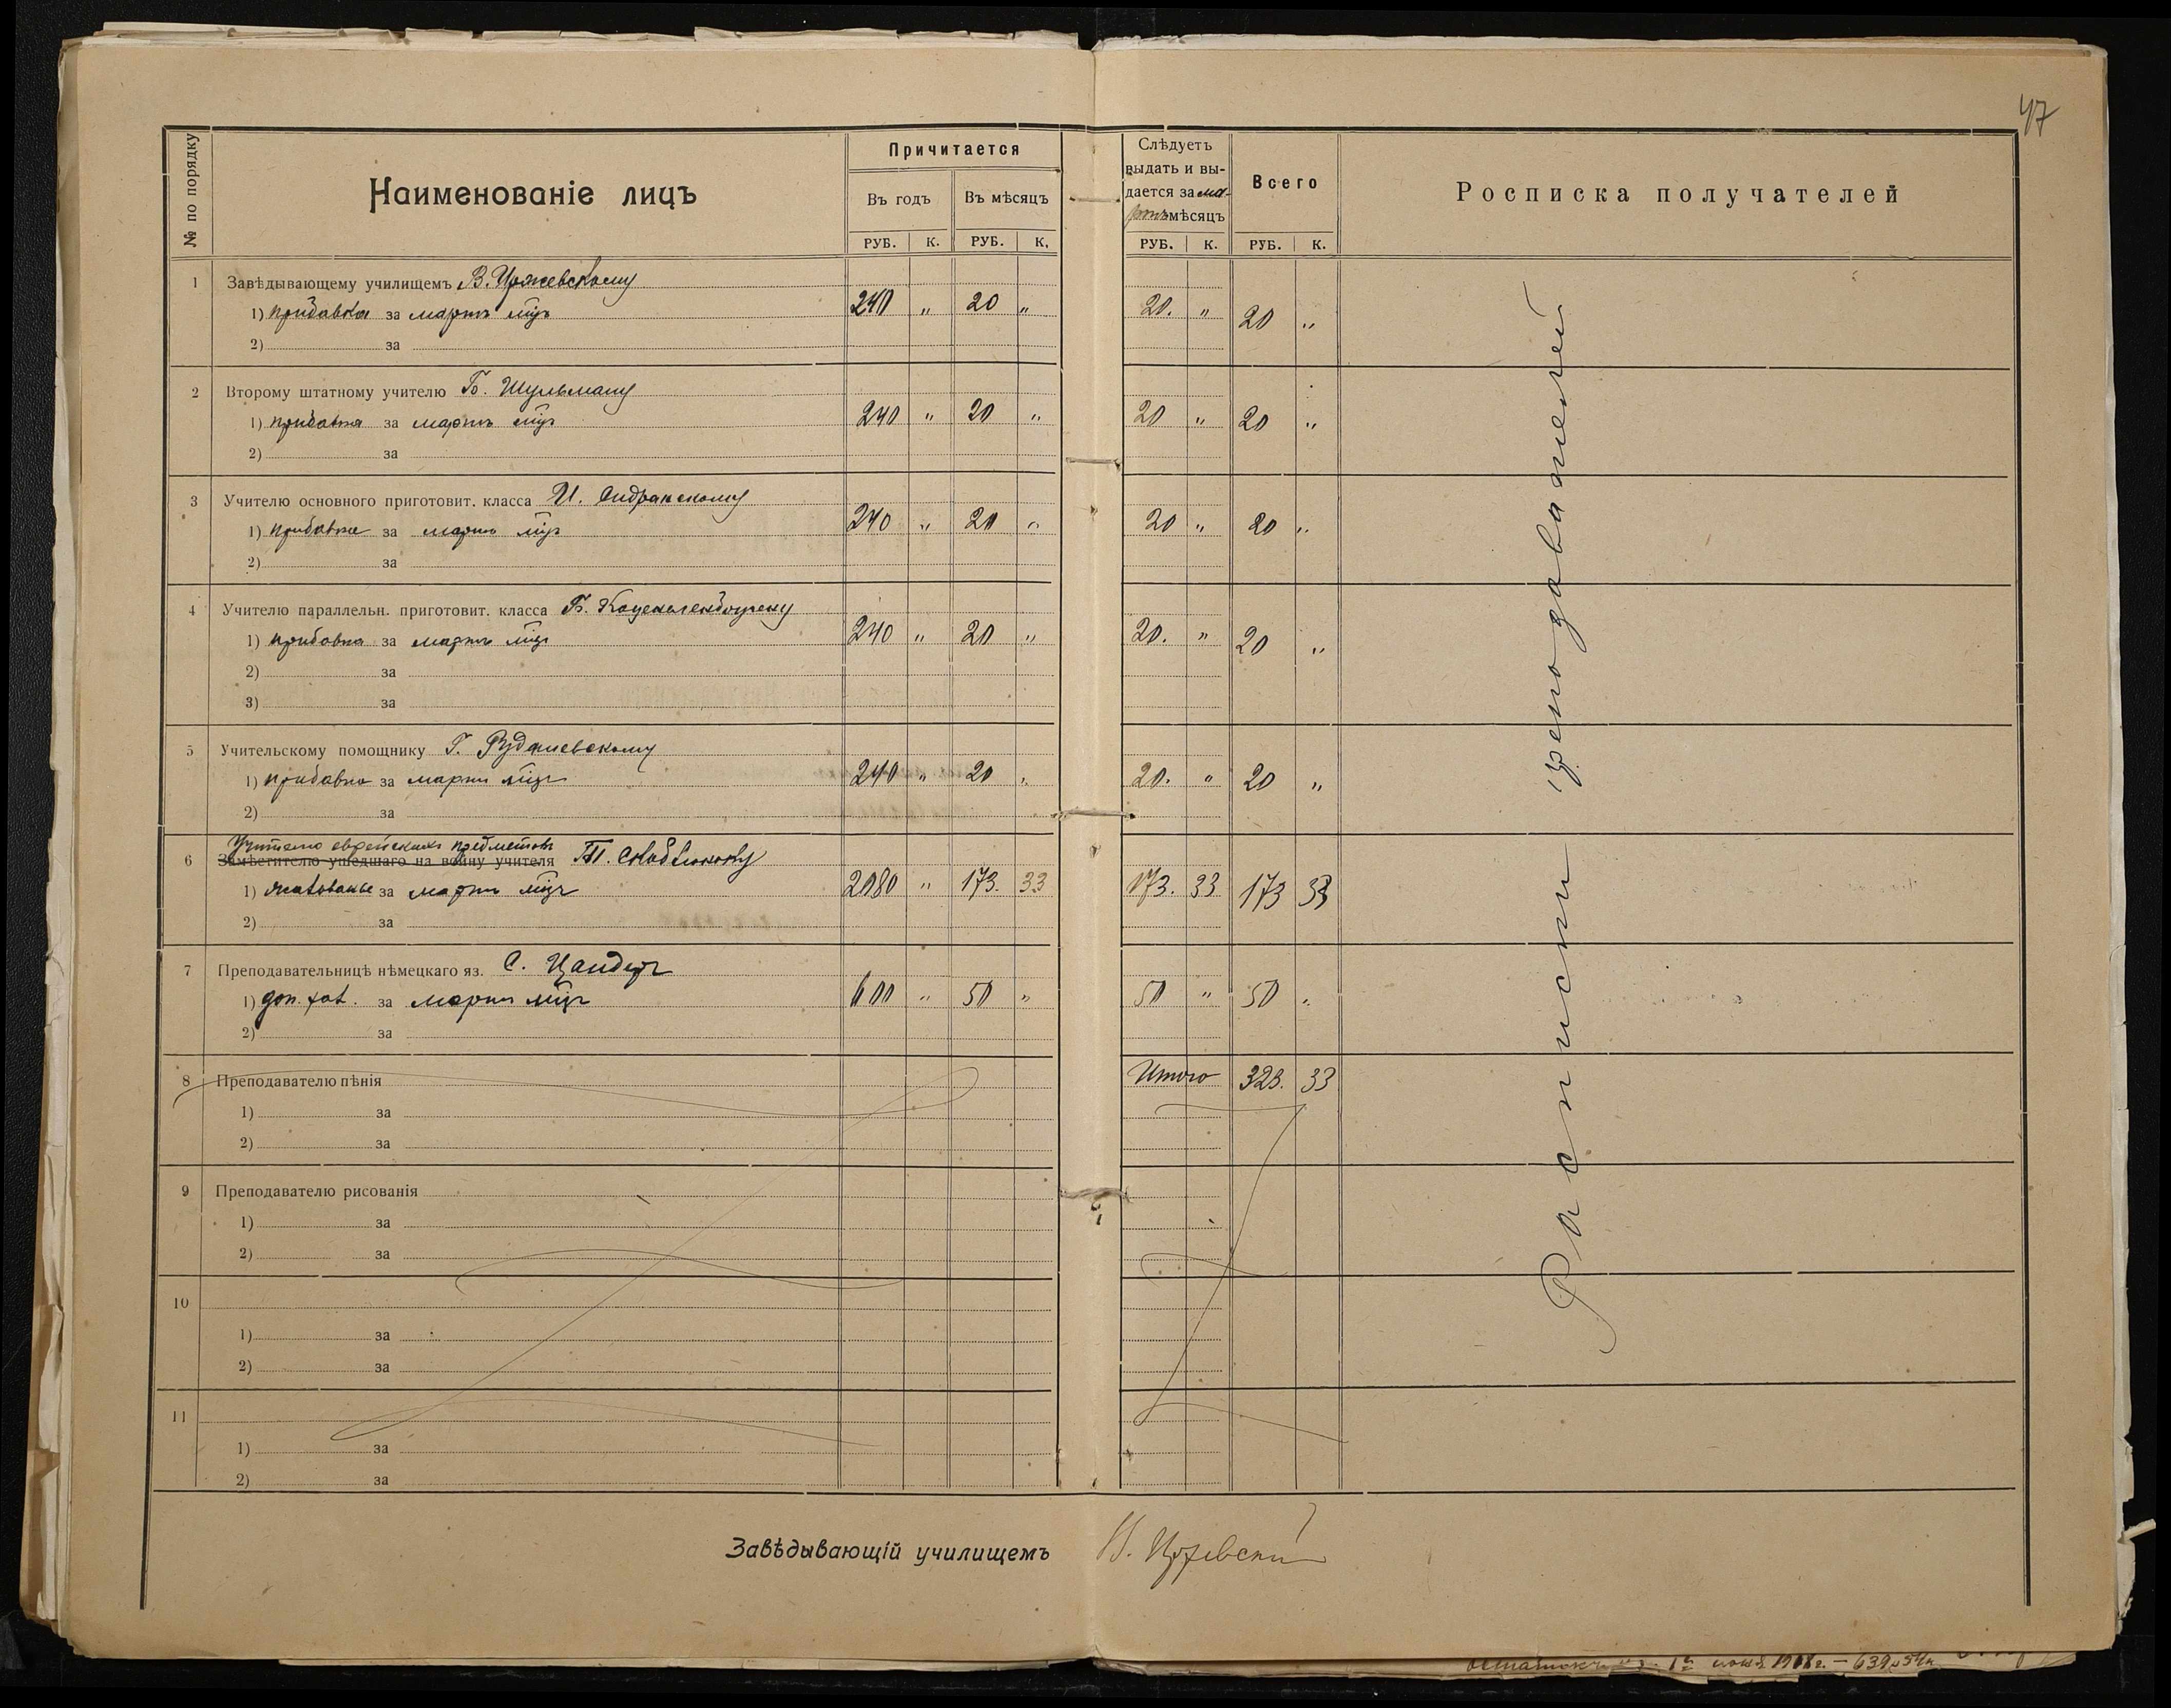 47
№ по порядку
Наименованіе лицъ
Причитается
Въ годъ Въ мѣсяцъ
РУБ. К. РУБ. К.
Слѣдуетъ
выдать и вы-
дается за ма-
ртъ мѣсяцъ
Всего
РУБ. К. РУБ. К.
Росписка получателей
1 Завѣдывающему училищемъ В.
1) прибавка за мартъ мцъ 240 „ 20 „ 20. „ 20 „
2) за
2 Второму штатному учителю Б. Шульману
1) прибавка за мартъ мцъ 240 „ 20 „ 20 „ 20 „
2) за
3 Учителю основного приготовит. класса И. Сидранскому
1) прибавка за мартъ мцъ 240 „ 20 „ 20 „ 20 „
2) за
4 Учителю параллельн. приготовит. класса Б.
1) прибавка за мартъ мцъ 240 „ 20 „ 20. „ 20 „
2) за
3) за
5 Учительскому помощнику Г. Рудашевскому
1) прибавка за мартъ мцъ 240 „ 20 „ 20. „ 20 „
2) за
Учителю еврейскихъ предметовъ
6 Замѣстителю ушедшаго на войну учителя
1) жалованье за мартъ мцъ 2080 „ 173. 33 173. 33 173 33
2) за
7 Преподавательницѣ нѣмецкаго яз. С. Цандеръ
1) доп. жал. за мартъ мцъ 600 „ 50 „ 50 „ 50 „
2) за
8 Преподавателю пѣнія Итого 323. 33
1) за
2) за
9 Преподавателю рисованія
1) за
2) за
10
1) за
2) за
11
1) за
2) за
Расписки преподавателей
Завѣдывающій училищемъ В.